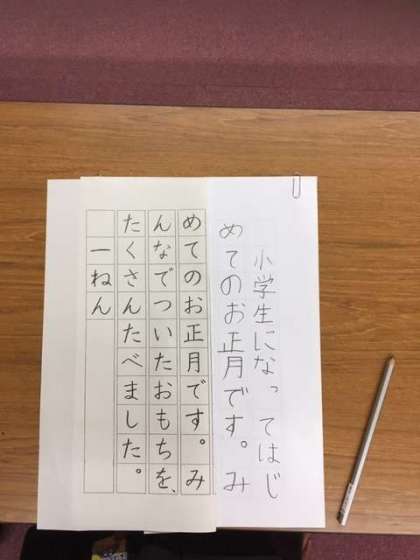 小学生になってはじ
めてのお正月です。み
めてのお正月です。み
んなでついたおもちを、
たくさんたべました。
一ねん